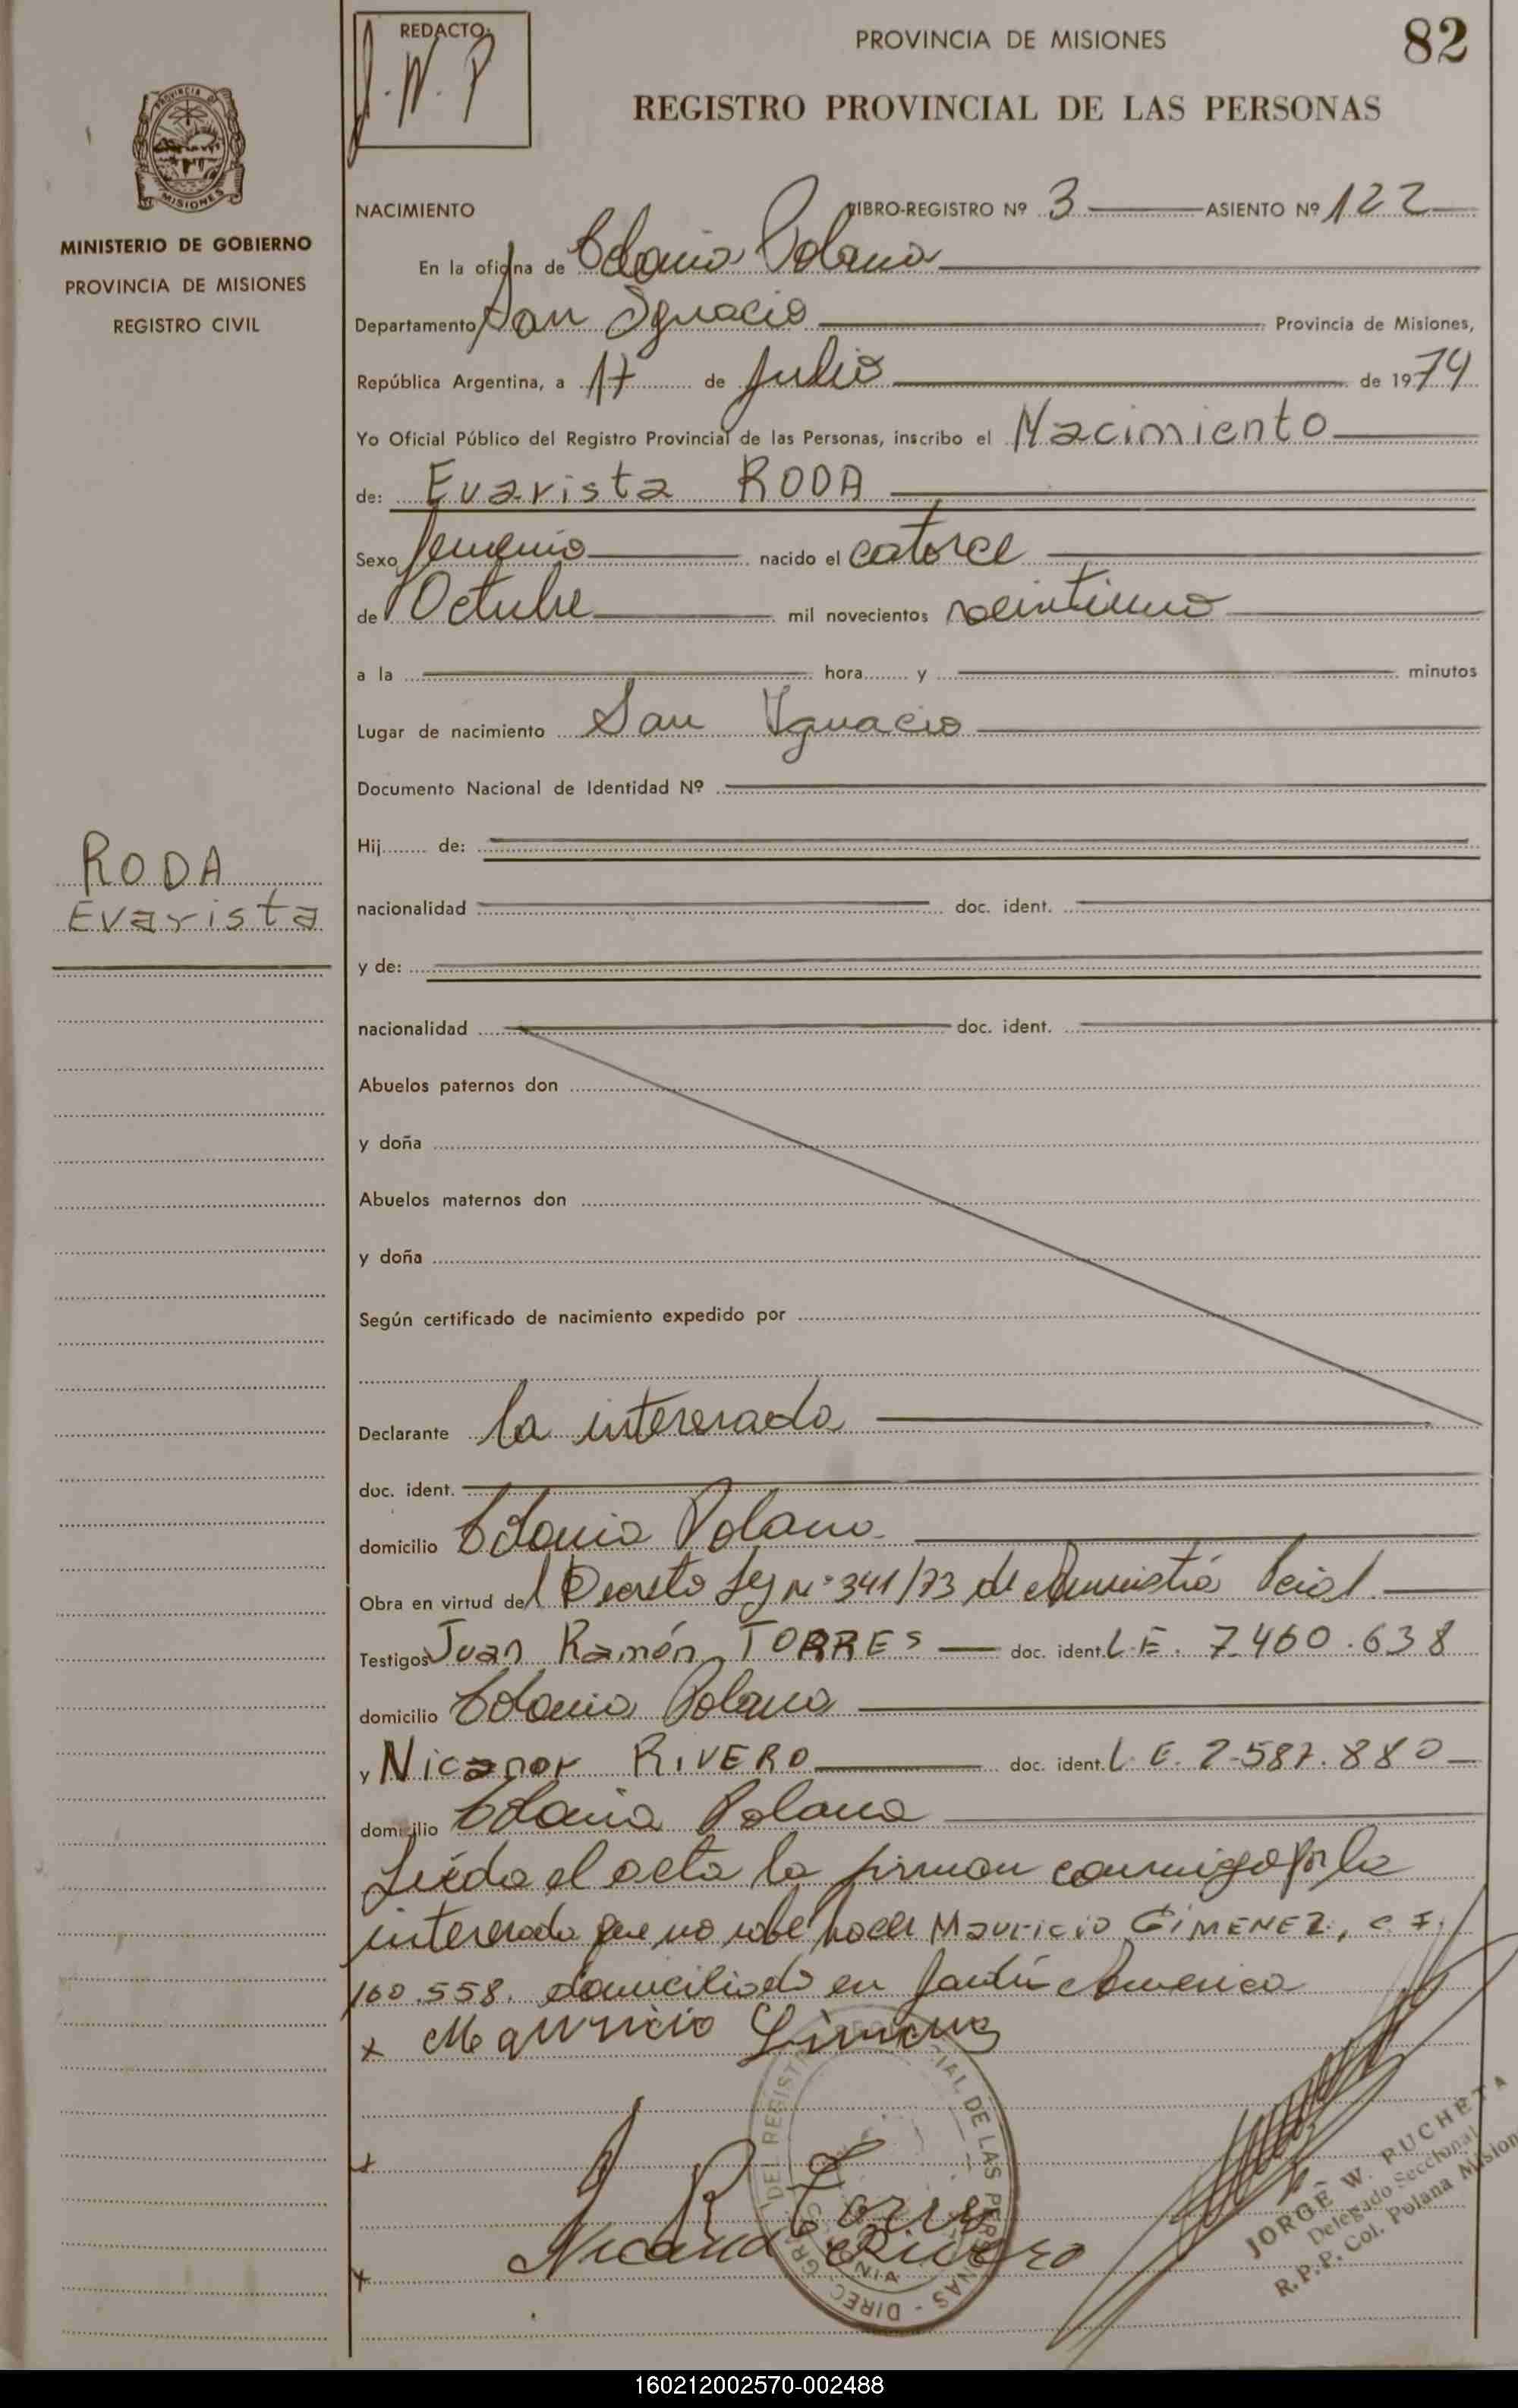 REDACTO:
J. W. P
PROVINCIA DE MISIONES
82
REGISTRO PROVINCIAL DE LAS PERSONAS
MISIONES
MINISTERIO DE GOBIERNO
PROVINCIA DE MISIONES
REGISTRO CIVIL
NACIMIENTO LIBRO-REGISTRO Nº 3 ASIENTO Nº 122
En la oficina de Colonia Polana
Departamento San Ignacio Provincia de Misiones,
República Argentina, a 17 de Julio de 1974
Yo Oficial Público del Registro Provincial de las Personas, inscribo el Nacimiento
de: Evarista RODA
Sexo femenino nacido el catorce
de Octubre mil novecientos veintiuno
a la hora y minutos
Lugar de nacimiento San Ignacio
Documento Nacional de Identidad Nº
Hij de:
RODA
Evarista
nacionalidad doc. ident.
y de:
nacionalidad doc. ident.
Abuelos paternos don
y doña
Abuelos maternos don
y doña
Según certificado de nacimiento expedido por
Declarante la interesada
doc. ident.
domicilio Colonia Polana
Obra en virtud del Decreto Ley Nº 341/73 de Amnistía
Testigos Juan Ramón TORRES doc. ident. L.E. 7.460.638
domicilio Colonia Polana
y Nicanor RIVERO doc. ident. L.E. 2.587.880
domicilio Colonia Polana
Leída el acta la firman conmigo por la
interesada que no sabe hacer Mauricio GIMENEZ, C.I.
160.558. domiciliado en Jardín America
x Mauricio Gimenez
x
J R Torres
x Nicanor Rivero
DEL REGISTRO PROVINCIAL DE LAS PERSONAS - DIREC. GRAL.
JORGE W. PUCHETA
Delegado Seccional
R.P.P. Col. Polana Misiones
160212002570-002488